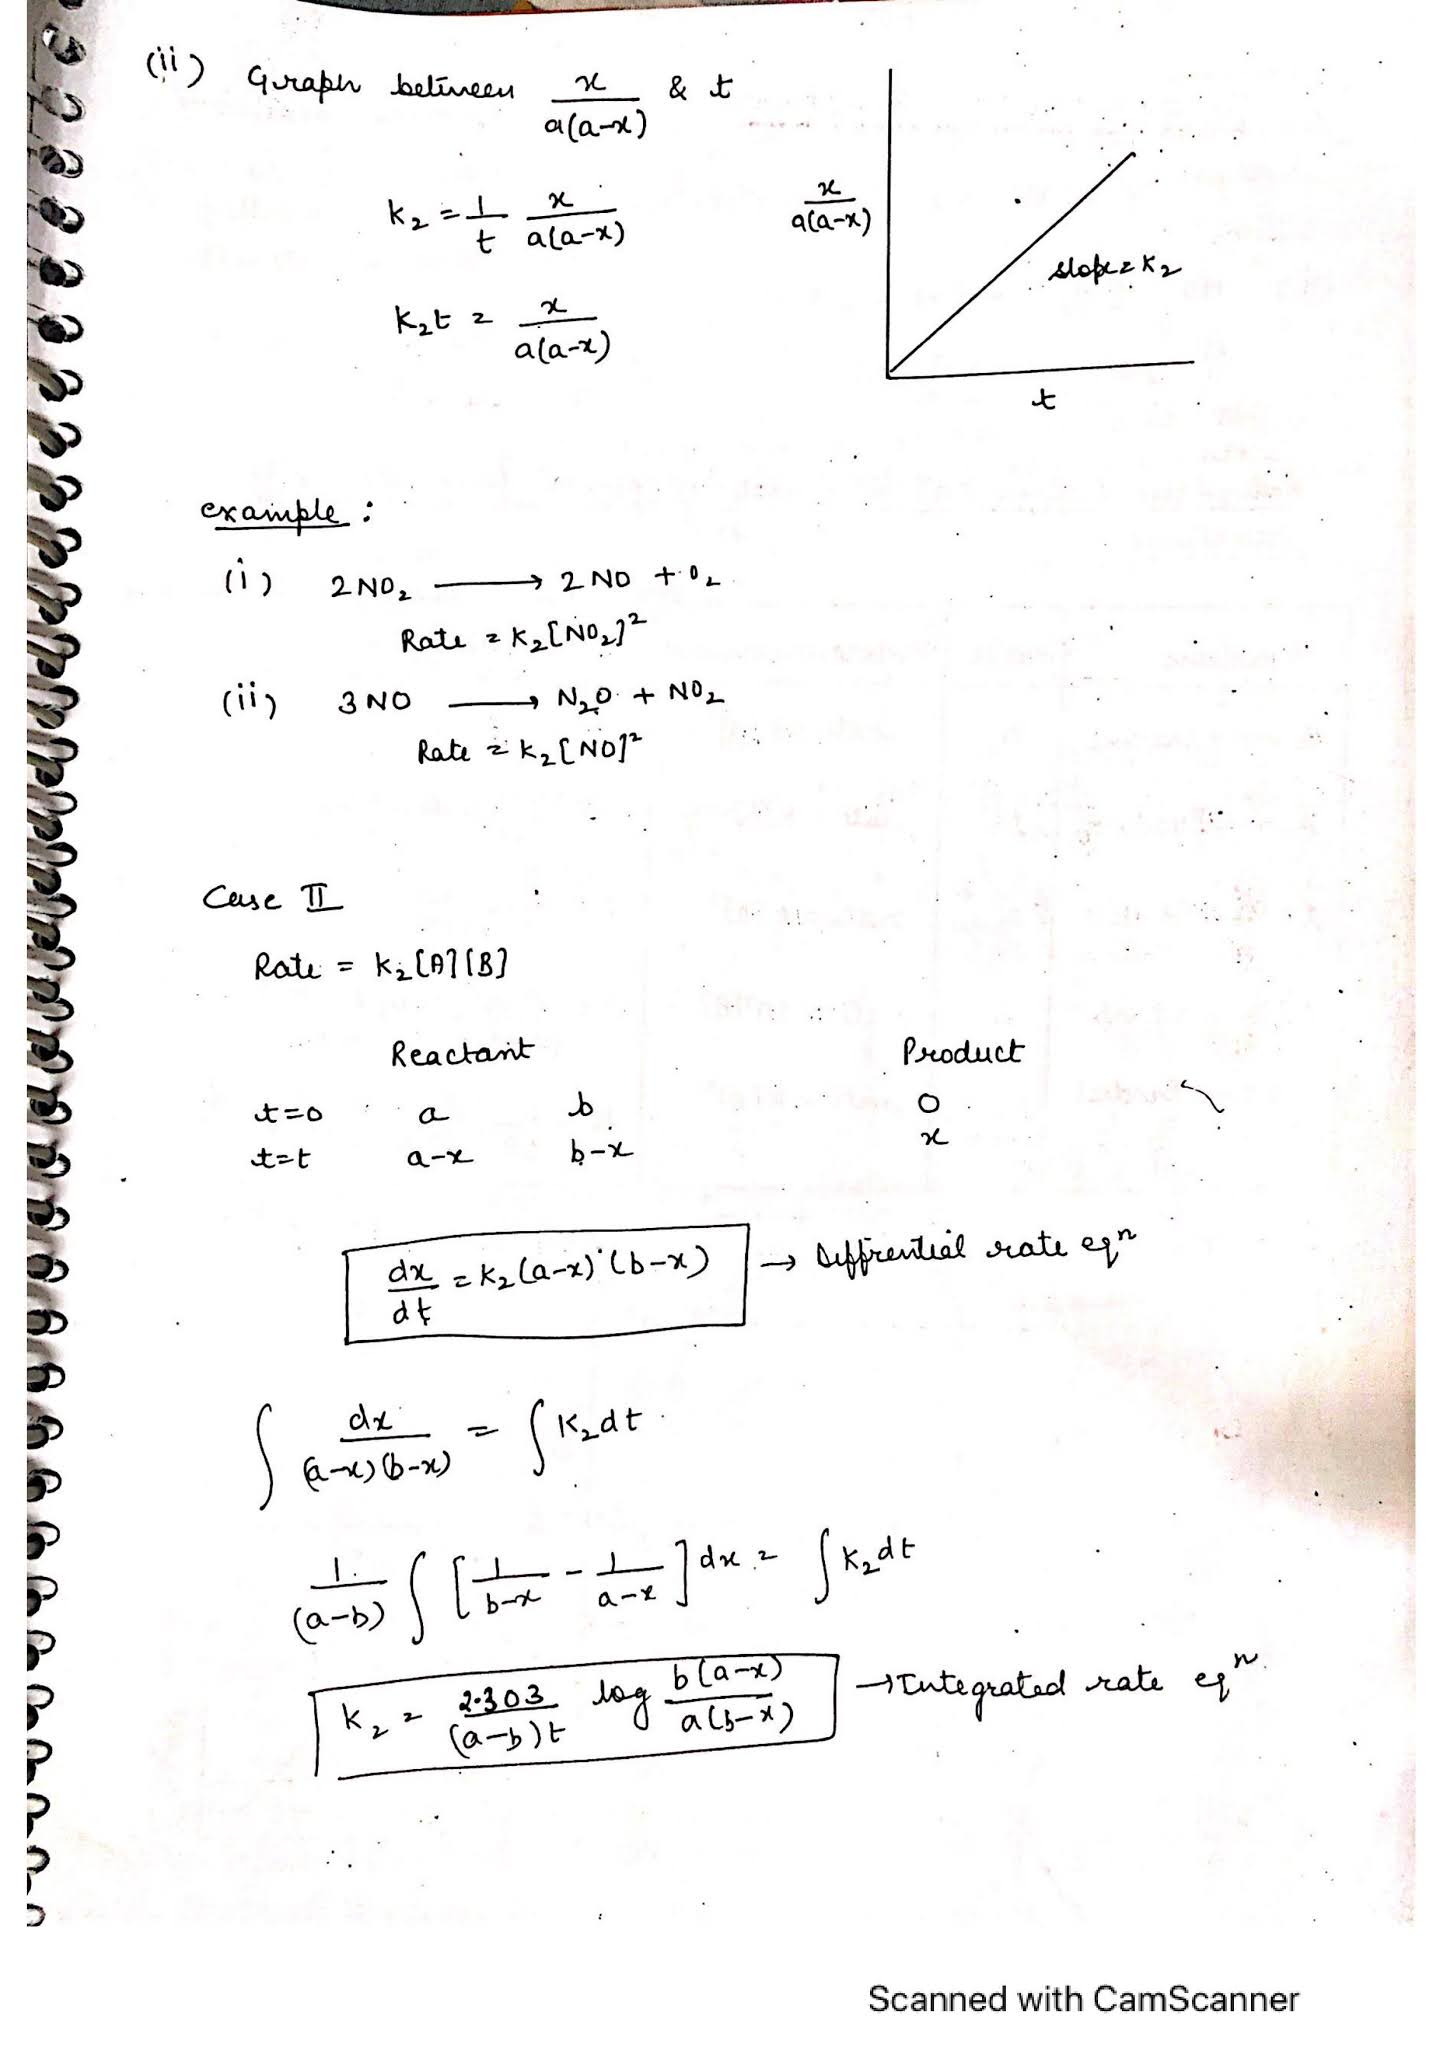 (ii) Graph between x/a(a-x) & t
k₂ = 1/t x/a(a-x)
k₂t = x/a(a-x)
x/a(a-x)
slope = k₂
t
example :
(i) 2NO₂ ⟶ 2NO + O₂
Rate = k₂[NO₂]²
(ii) 3NO ⟶ N₂O + NO₂
Rate = k₂[NO]²
Case II
Rate = k₂[A][B]
Reactant Product
t=0 a b 0
t=t a-x b-x x
dx/dt = k₂(a-x)(b-x) → Diffrential rate eqⁿ
∫ dx/(a-x)(b-x) = ∫ k₂dt
1/(a-b) ∫ [1/b-x - 1/a-x] dx = ∫ k₂dt
k₂ = 2.303/(a-b)t log b(a-x)/a(b-x) → Integrated rate eqⁿ
Scanned with CamScanner